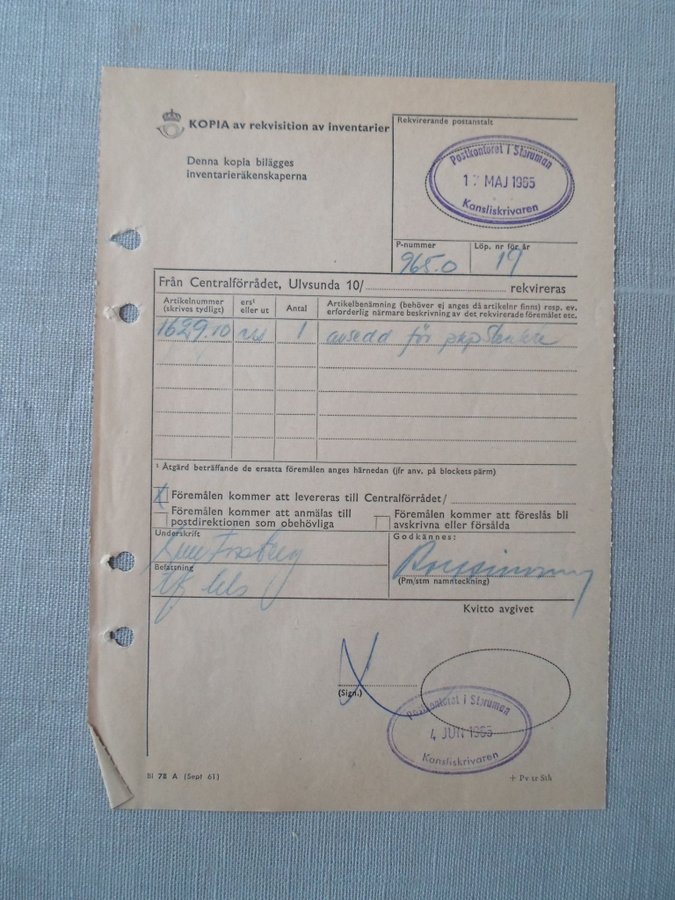 KOPIA av rekvisition av inventarier
Denna kopia bilägges
inventarieräkenskaperna
Rekvirerande postanstalt
Postkontoret i Storuman
MAJ 1965
Kansliskrivaren
P-nummer
Löp. nr för år
965.0
19
Från Centralförrådet, Ulvsunda 10/ rekvireras
Artikelnummer
(skrives tydligt)
ers¹
eller ut
Antal
Artikelbenämning (behöver ej anges då artikelnr finns) resp. ev.
erforderlig närmare beskrivning av det rekvirerade föremålet etc.
1629.10 1 avsedd för
¹ Åtgärd beträffande de ersatta föremålen anges härnedan (jfr anv. på blockets pärm)
X Föremålen kommer att levereras till Centralförrådet/
Föremålen kommer att anmälas till
postdirektionen som obehövliga
Föremålen kommer att föreslås bli
avskrivna eller försålda
Underskrift
Godkännes:
Befattning
(Pm/stm namnteckning)
Kvitto avgivet
(Sign.)
Postkontoret i Storuman
4 JUN 1965
Kansliskrivaren
Bl 78 A (Sept 61)
+ Pv tr Sth